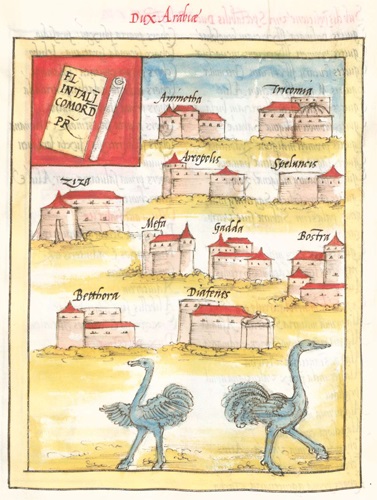 Dux Arabiæ
FL
INTALĪ
COMORD
PR̄
Ammotha
Tricomia
Areopolis
Speluncis
ZIZA
Mefa
Gadda
Bostra
Betthora
Diafenes